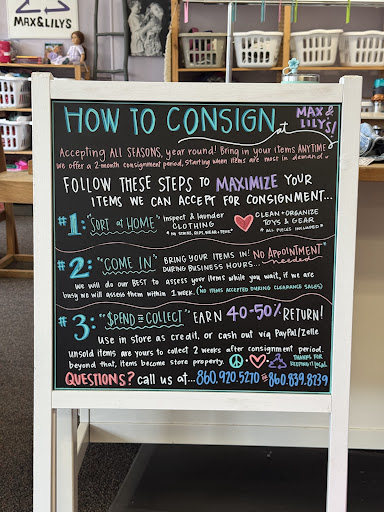 MAX&LILYS
HOW TO CONSIGN at MAX & LILYS!
Accepting ALL SEASONS, year round! Bring in your items ANYTIME
we offer a 2-month consignment period, starting when items are most in demand.
FOLLOW THESE STEPS TO MAXIMIZE YOUR
ITEMS WE CAN ACCEPT FOR CONSIGNMENT...
#1: "SORT at HOME" Inspect & launder CLOTHING
* NO STAINS, RIPS, WEAR + TEAR *
CLEAN + ORGANIZE TOYS & GEAR
* ALL PIECES INCLUDED *
#2: "COME IN" BRING YOUR ITEMS IN! NO APPOINTMENT needed
DURING BUSINESS HOURS...
We will do our BEST to assess your items while you wait, if we are
busy we will assess them within 1 week. (NO ITEMS ACCEPTED DURING CLEARANCE SALES)
#3: "$PEND or COLLECT" EARN 40-50% RETURN!
Use in store as credit, or cash out via PayPal/Zelle
Unsold items are yours to collect 2 weeks after consignment period.
beyond that, items become store property.
THANKS FOR KEEPING IT LOCAL
QUESTIONS? call us at... 860.920.5270 or 860.839.8739